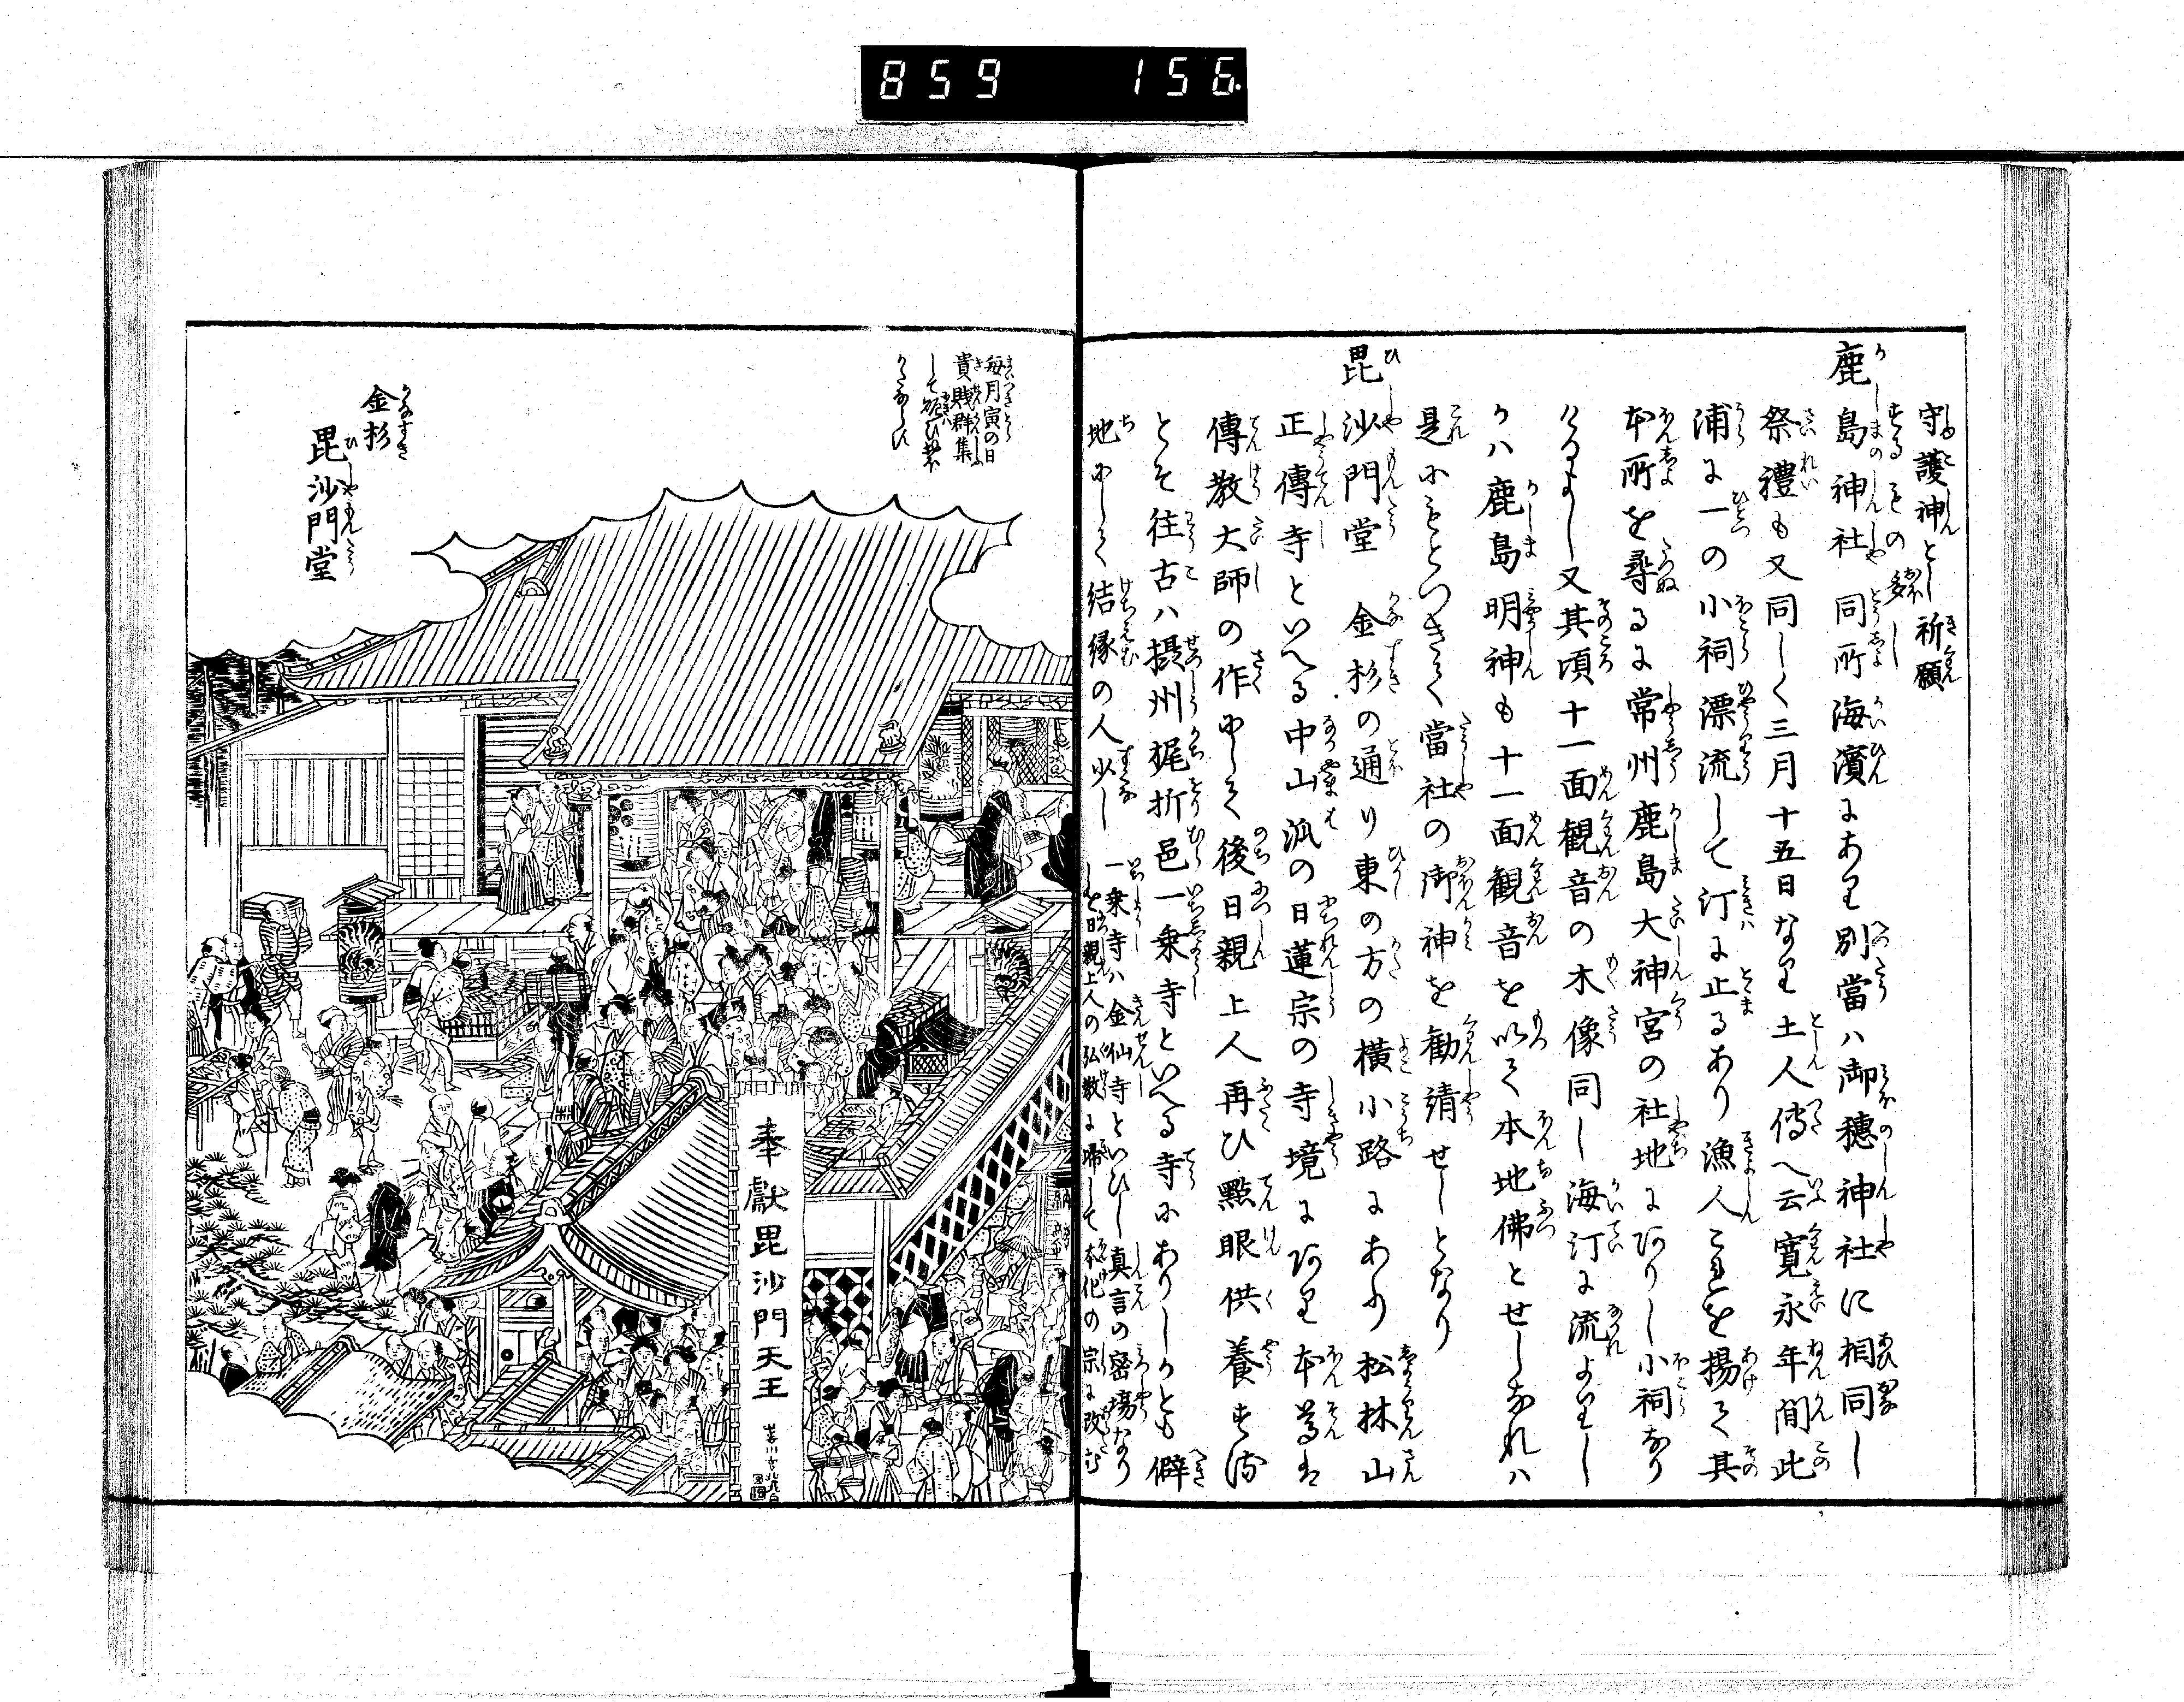 859 156
守護神とし祈願
するもの多し
鹿島神社 同所海濱にあり別當ハ御穂神社に相同し
祭禮も又同しく三月十五日なり土人傳へ云寛永年間此
浦に一の小祠漂流して汀に止るあり漁人これを揚て其
本所を尋るに常州鹿島大神宮の社地にありし小祠なり
けるよし又其頃十一面観音の木像同し海汀に流よりし
かハ鹿島明神も十一面観音を以て本地佛とせしなれハ
是にもとつきて當社の御神を勧請せしとなり
毘沙門堂 金杉の通り東の方の横小路にあり松林山
正傳寺といへる中山派の日蓮宗の寺境にあり本尊は
傳教大師の作にして後日親上人再ひ點眼供養す済
とそ往古ハ摂州梶折邑一乗寺といへる寺にありしかとも僻
地にして結縁の人少し
一乗寺ハ金仙寺といひし真言の密場なり
しを日親上人の弘教に帰して本化の宗に改む
毎月寅の日
貴賤群集
して賑ひ
金杉
毘沙門堂
奉獻毘沙門天王